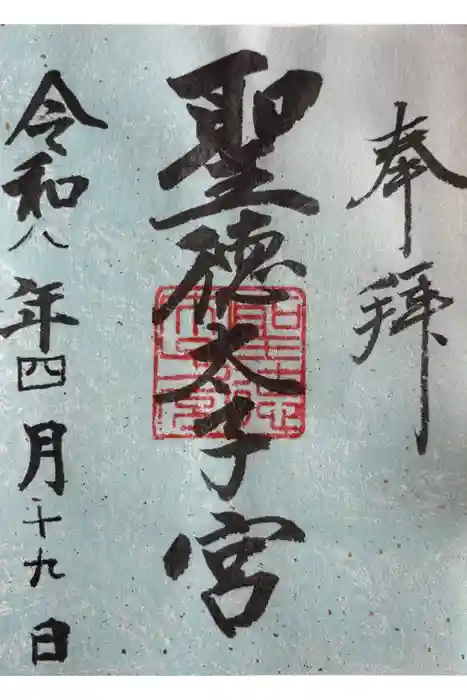 奉拝
聖徳太子宮
令和八年四月十九日